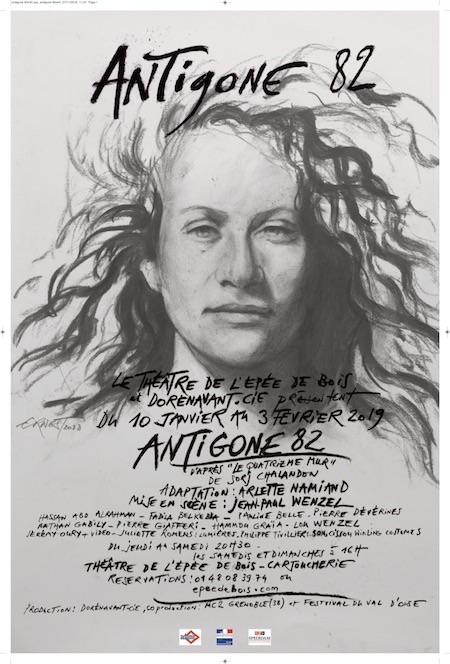 ANTIGONE 82
LE THÉÂTRE DE L'ÉPÉE DE BOIS
et DORÉNAVANT.CIE présentent
DU 10 JANVIER AU 3 FÉVRIER 2019
ANTIGONE 82
D'APRÈS "LE QUATRIÈME MUR"
DE SORJ CHALANDON
ADAPTATION: ARLETTE NAMIAND
MISE EN SCÈNE: JEAN-PAUL WENZEL
HASSAN ABD ALRAHMAN - FADILA BELKEBLA - PAULINE BELLE - PIERRE DEVÉRINES
NATHAN GABILY - PIERRE GIAFFERI - HAMMOU GRAÏA - LOU WENZEL
JÉRÉMY OURY: VIDEO - JULIETTE ROMENS: LUMIÈRES, PHILIPPE TIVILLIER: SON, CISSOU WINLING COSTUMES
DU JEUDI AU SAMEDI 20H30 -
LES SAMEDIS ET DIMANCHES à 16H
THÉÂTRE DE L'ÉPÉE DE BOIS - CARTOUCHERIE
RESERVATIONS: 01 48 08 39 74 ou
epeedebois.com
PRODUCTION: DORÉNAVANT-CIE, COPRODUCTION: MC2 GRENOBLE (38) et FESTIVAL DU VAL D'OISE
SPEDIDAM